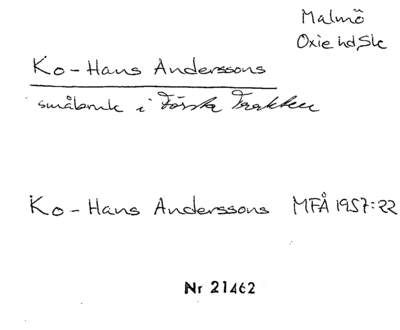 Malmö
Oxie hd, Sk
Ko-Hans Anderssons
småbruk i Första Trakten
Ko-Hans Anderssons MFÅ 1957:22
Nr 21462